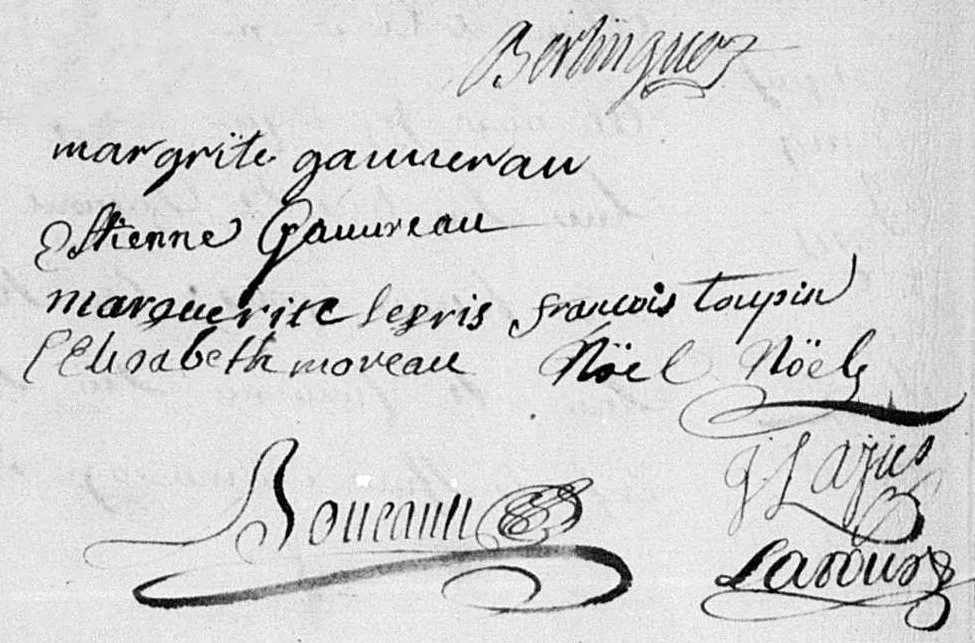 Berlinguet
margrïte gauurerau
Etienne Gauureau
marguerite legris françois toupin
Elisabeth moreau Nöel Nöel
J Lajus
Boucault
Latour